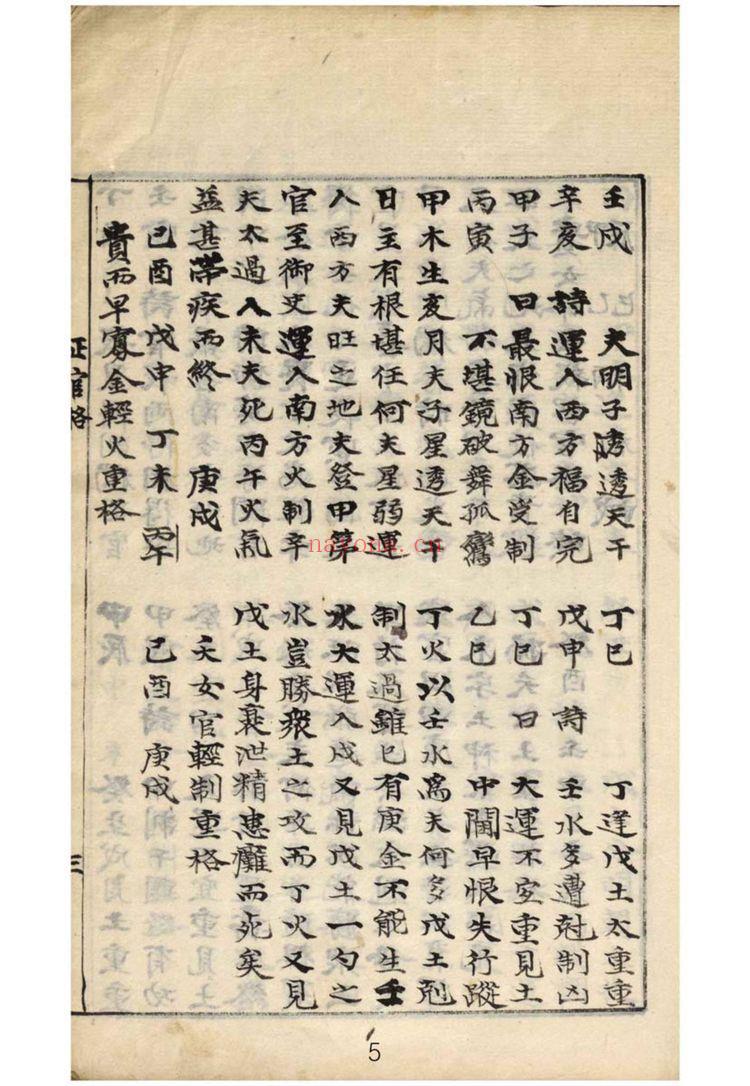 壬戌 夫明子透透天干
辛亥 詩運入西方福自完
甲子 曰最恨南方金受制
丙寅 不堪鏡破舞孤鸞
甲木生亥月夫子星透天干
日主有根堪任何夫星弱運
入西方夫旺之地夫登甲第
官至御史運入南方火制辛
夫太過入未夫死丙午火氣
益甚帶疾而終 庚戌
己酉 戊申 丁未 丙午
貴而早寡金輕火重格
丁巳 丁逢戊土太重重
戊申 詩 壬水多遭尅制凶
丁巳 曰 大運不宜重見土
乙巳 中閫早恨失行蹤
丁火以壬水為夫何多戊土剋
制太過雖巳有庚金不能生壬
水大運入戌又見戊土一勺之
水豈勝衆土之攻而丁火又見
戊土身衰泄精患癱而死矣
夭女官輕制重格
己酉 庚戌
正官格
三
nayona.cn
5